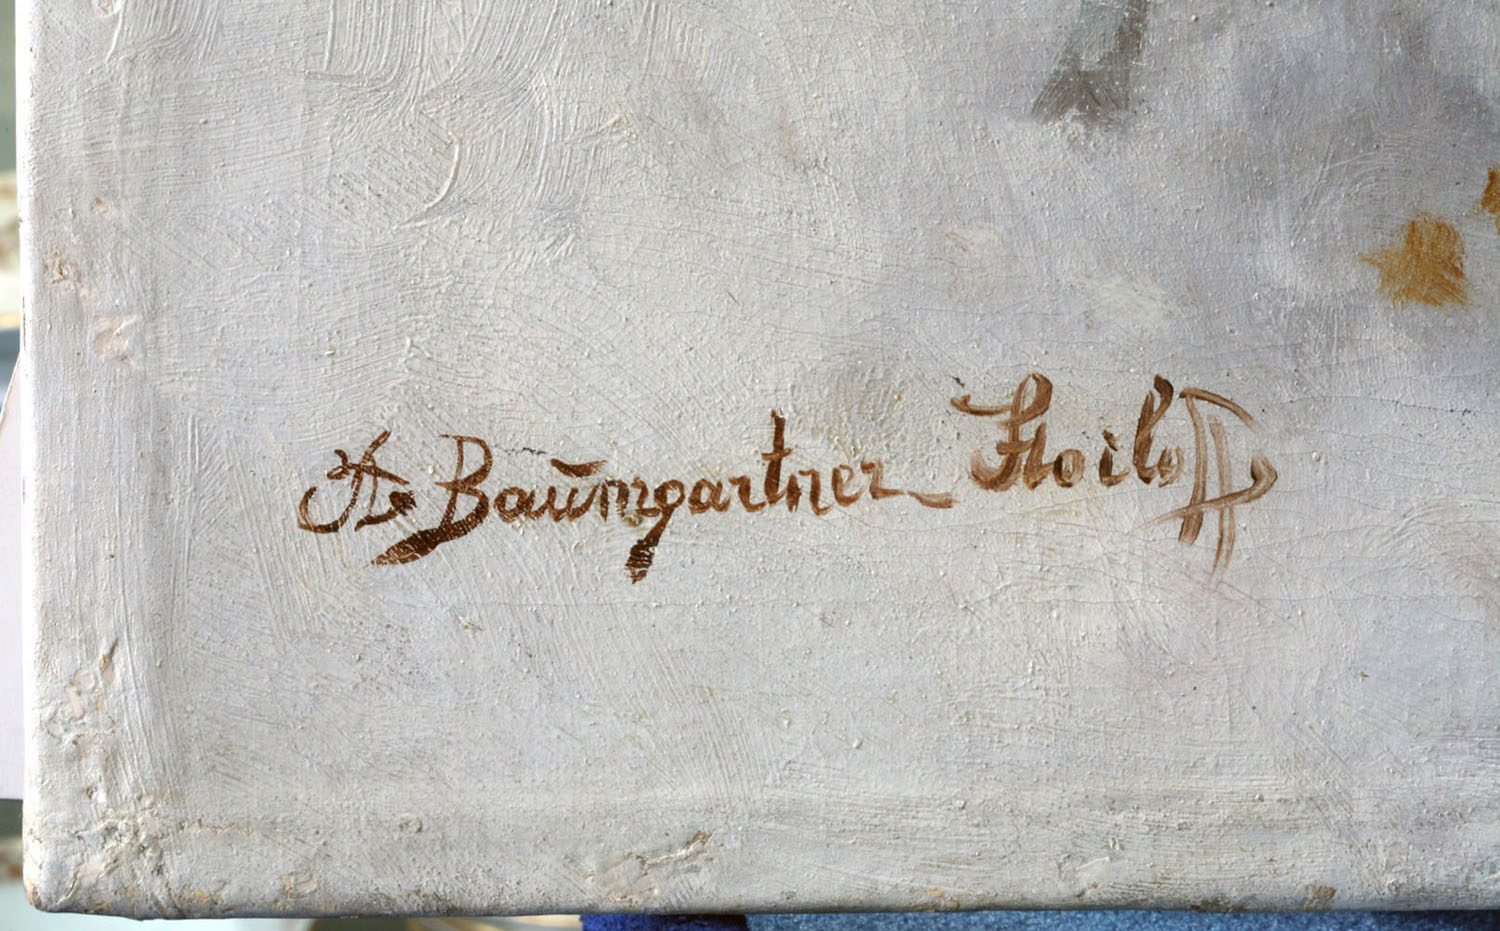 A Baumgartner Stoiloff